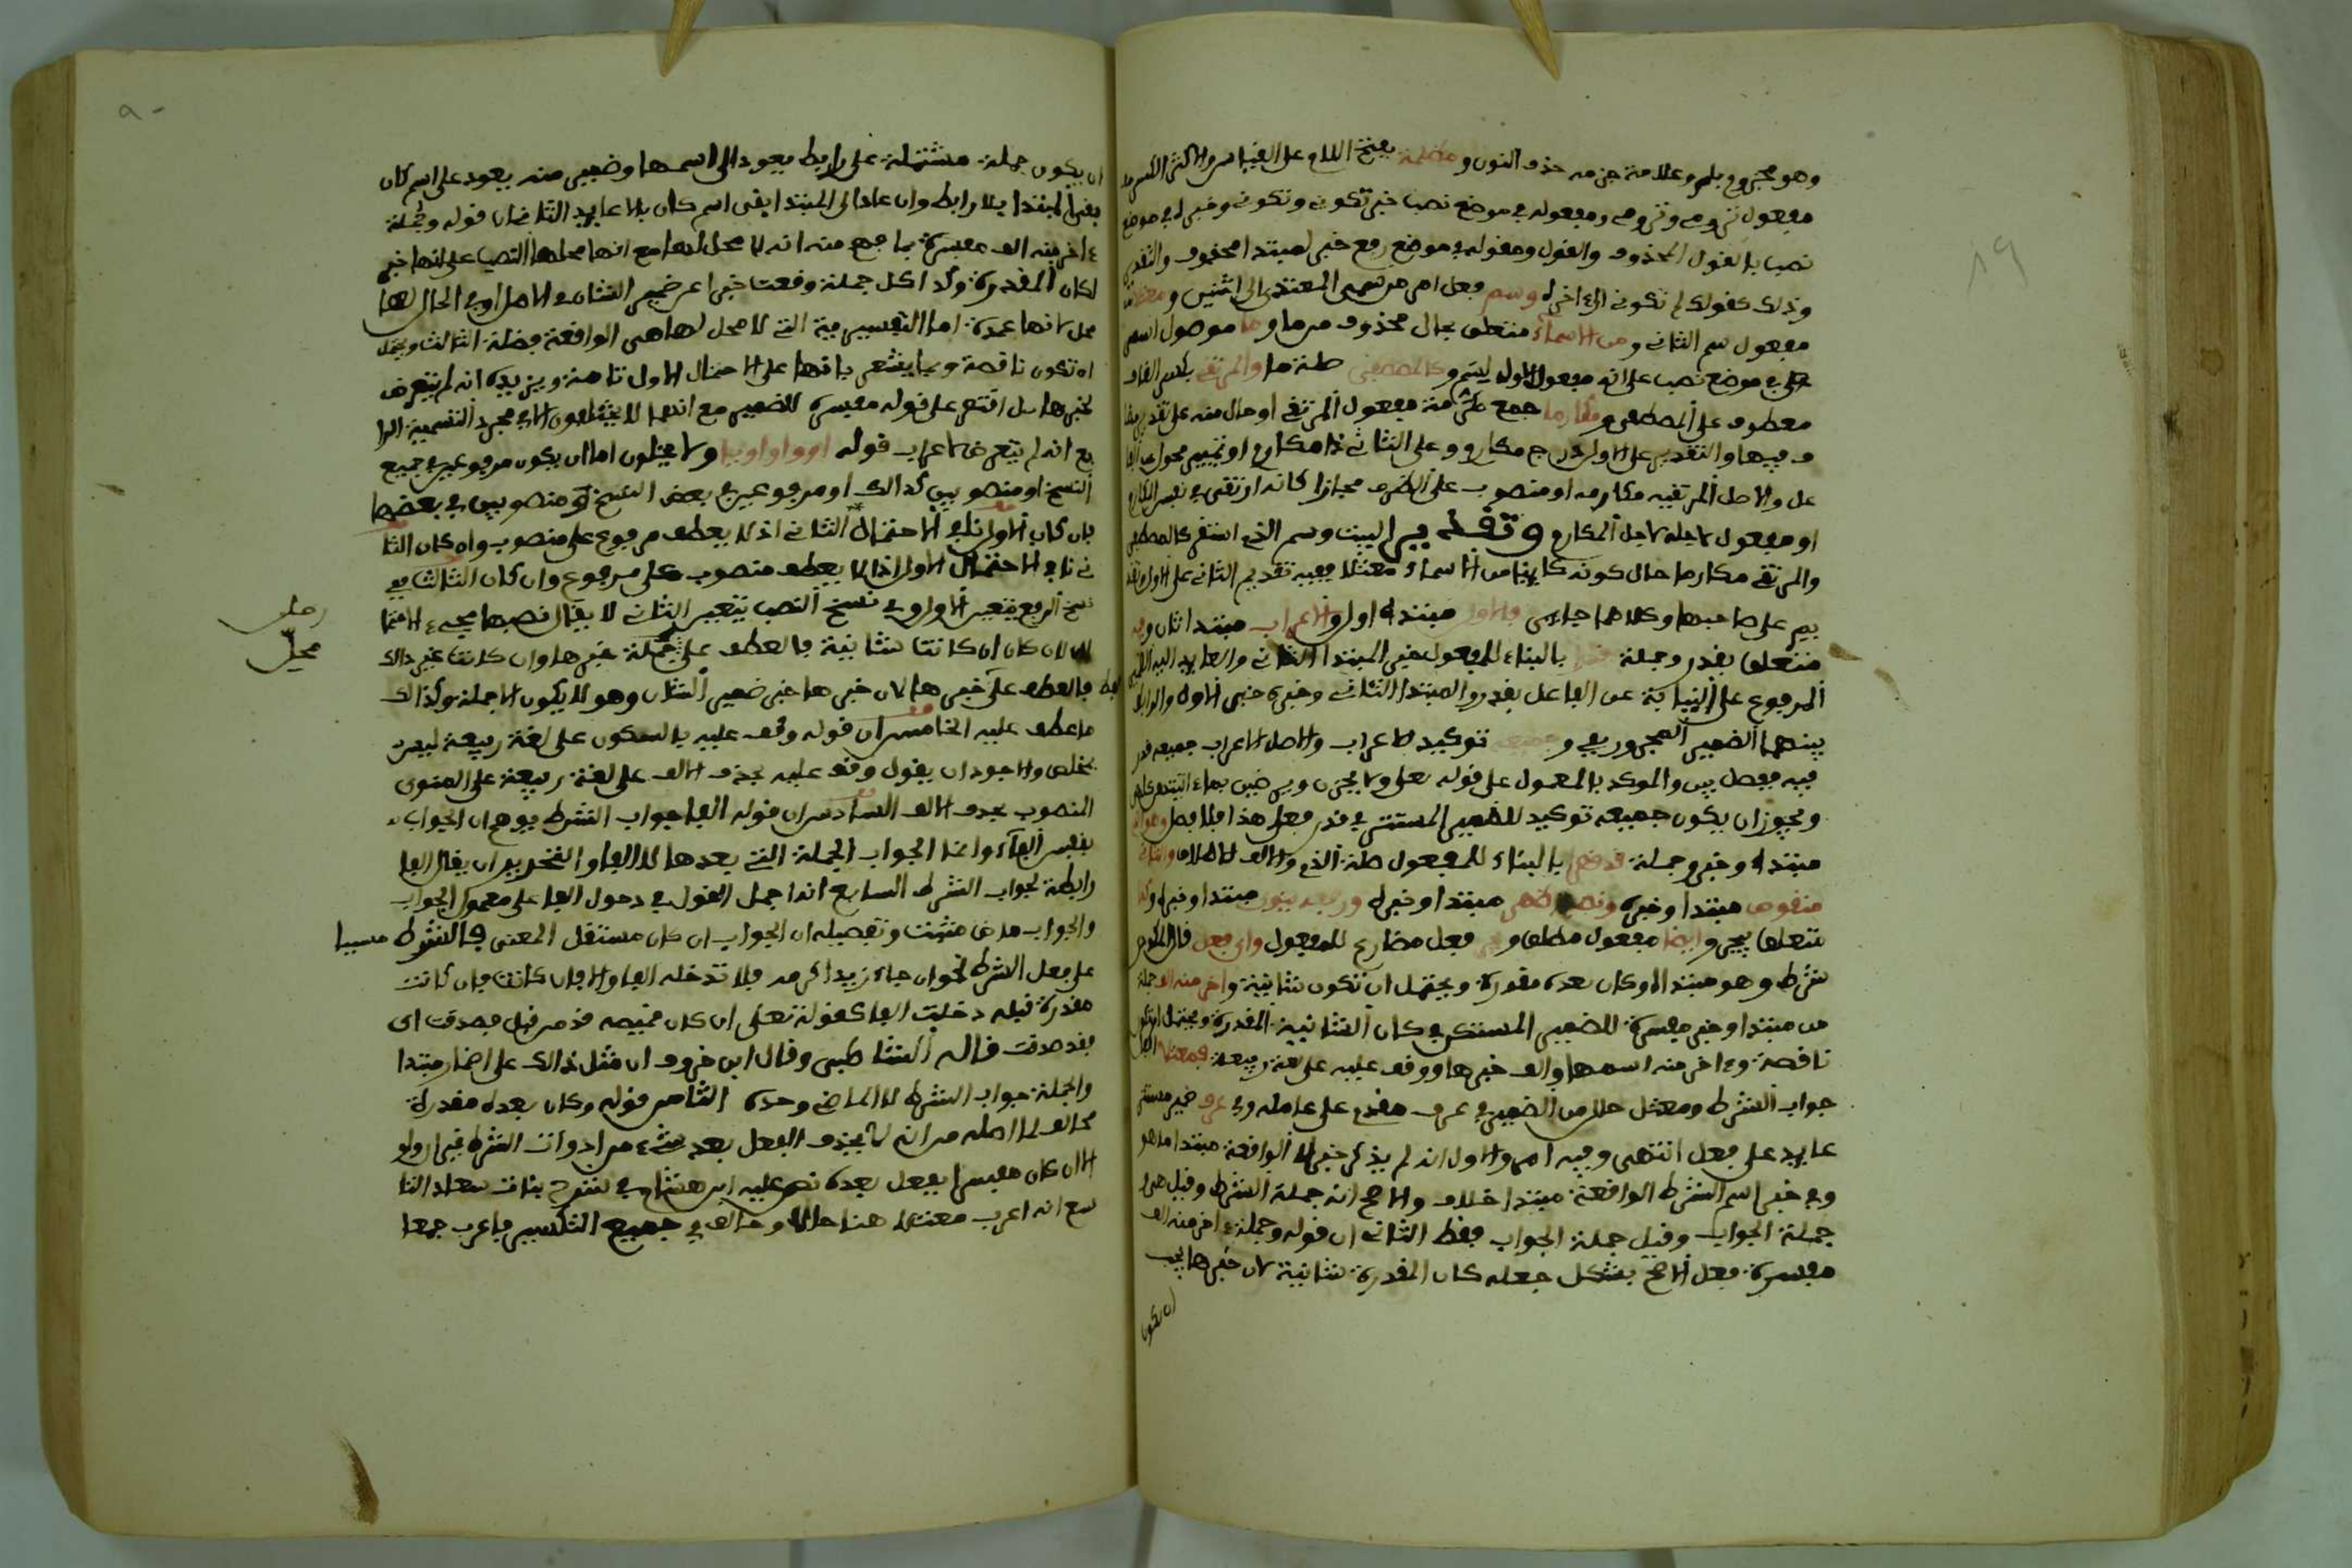 وهو مجزوم بلم وعلامة جزمه حذف النون ومظلمة بفتح اللام على القياس والاكثر الكسر
مفعول ترومي وترومي ومفعوله في موضع نصب خبر تكوني وتكوني وخبرها في موضع
نصب بالقول المحذوف والقول ومقوله في موضع رفع خبر لمبتدا محذوف والتقدير
وذلك كقولك لم تكوني الى اخره وسم فعل امر من سمى المتعدي الى اثنين
مفعول سم الثاني ومن الاسماء متعلق بحال محذوف من ما وما موصول اسمي
في موضع نصب على انه مفعول الاول لسم وكالمصطفى صلة ما والمرتقي بكسر القاف
معطوف على المصطفى ومكارما جمع مكرمة مفعول المرتقي او حال منه على تقدير مضا
ف فيهما والتقدير على الاول درج مكارم وعلى الثاني ذا مكارم او تمييز محول عن الفا
عل والاصل المرتقيه مكارمه او منصوب على الظرف مجازا كانه ارتقى في نفس المكارم
او مفعول لاجله لاجل المكارم وتقدير البيت وسم الذي استقر كالمصطفى
والمرتقي مكارما حال كونه كاينا من الاسماء معتلا ففيه تقديم الثاني على الاول
يم على صاحبها وكلاهما جايز والاول مبتدا اول والاعراب مبتدا ثان وفيه
متعلق بقدر وجملة قدرا بالبناء للمفعول خبر المبتدا الثاني والعايد اليه الضمير
المرفوع على النيابة عن الفاعل بقدر والمبتدا الثاني وخبره خبر الاول والرابط
بينهما الضمير المجرور بفي وجميعه توكيد للاعراب والاصل الاعراب جميعه قدر
فيه ففصل بين والموكد بالمعمول على قوله تعلى ولا يحزن ويرضين بما اتيتهن كلهن
ويجوز ان يكون جميعه توكيد للضمير المستتر في قدر فعلى هذا فلا فصل
مبتدا وخبر وجملة قد قصرا بالبناء للمفعول صلة الذي والالف للاطلاق والثاني
منقوص مبتدا وخبره ونصبه ظهر مبتدا وخبره ورفعه ينوى مبتدا وخبره
متعلق بيجر وايضا مفعول مطلق ويجر فعل مضارع للمفعول واي فعل قال المكودي
شرط وهو مبتدا وكان بعده مقدرة ويحتمل ان تكون شانية واخر منه الف جملة
من مبتدا وخبر مفسرة للضمير المستكن في كان الشانية المقدرة ويحتمل ان تكون
ناقصة وءاخر منه اسمها والف خبرها ووقف عليه على لغة ربيعة فمعتلا
جواب الشرط ومعتل حال من الضمير في عرف مقدم على عامله وفي عرف ضمير مستتر
عايد على فعل انتهى وفيه امور الاول انه لم يذكر خبر اي الواقعة مبتدا ما هو
وفي خبر اسم الشرط الواقعة مبتدا خلاف والاصح انه جملة الشرط وقيل هي
جملة الجواب وقيل جملة الجواب فقط الثاني ان قوله وجملة ءاخر منه الف
مفسرة فعلى الاصح يشكل جعله كان المقدرة شانية لان خبرها يجب
ان يكون
ان يكون جملة مشتملة على رابط يعود الى اسمها وضمير منه يعود على اسم كان
بقي المبتدا بلا رابط وان عاد الى المبتدا بقي اسم كان بلا عايد الثالث ان قوله وجملة
ءاخر منه الف مفسرة بما جمع منه انه لا محل لها مع انها محلها النصب على انها خبر
لكان المقدرة وكذا كل جملة وقعت خبرا عن ضمير الشان في الاصل او في الحال لها
محل لانها عمدة اما التفسيرية التي لا محل لها هي الواقعة فضلة الثالث ويحتمل
ان تكون ناقصة وبما يشعر باقتها على الاحتمال الاول تامة ويزيده انه لم يتعرض
لخبرها بل اقتصر على قوله مفسرة للضمير مع انهما لا يختلفون الا في مجرد التسمية الرا
بع انه لم يتعرض لاعراب قوله او واو او يا ولا يخلون اما ان يكون مرفوعين في جميع
النسخ او منصوبين كذالك او مرفوعين في بعض النسخ او منصوبين في بعضها
فان كان الاول نافى الاحتمال الثاني اذ لا يعطف مرفوع على منصوب وان كان الثا
ني نافى الاحتمال الاول اذ لا يعطف منصوب على مرفوع وان كان الثالث ففي
نسخ الرفع يتعين الاول وفي نسخ النصب يتعين الثاني لا يقال نصبهما يجيء الاحتما
لان لان كان ان كانت شانية فالعطف على جملة خبرها وان كانت غير ذالك
فالعطف على خبرها لان خبرها خبر ضمير الشان وهو لا يكون الا جملة وكذالك
ما عطف عليه الخامس ان قوله وقف عليه بالسكون على لغة ربيعة ليس
بخلص والاجود ان يقول وقف عليه بحذف الالف على لغة ربيعة على المنون
المنصوب بحذف الالف السادس ان قوله الفا جواب الشرط يوهم ان الجواب
بنفس الفاء وانما الجواب الجملة التي بعدها لا الفا والتحرير ان يقال الفا
رابطة لجواب الشرط السابع انه اجمل القول في دخول الفا على معمول الجواب
والجواب ماض مثبت وتفصيله ان الجواب ان كان مستقل المعنى فالشرط مسببا
على فعل الشرط نحو ان جاء زيد اكرمه فلا تدخله الفا والا فان كانت فان كانت
مقدرة قبله دخلت الفا كقوله تعلى ان كان قميصه قد من قبل فصدقت اي
فقد صدقت قاله الشاطبي وقال ابن خروف ان مثل ذالك على اضمار مبتدا
والجملة جواب الشرط لا الماضي وحده الثامن قوله وكان بعده مقدرة
مخالف لما اصله من انه لا يحذف الفعل بعد شيء من ادوات الشرط غير ان ولو
الا ان كان مفسرا بفعل بعده نص عليه ابن هشام في شرح بانت سعاد التا
سع انه اعرب معتلا هنا حالا وخالف في جميع التكسير فاعرب جمعا
رملہ
محل